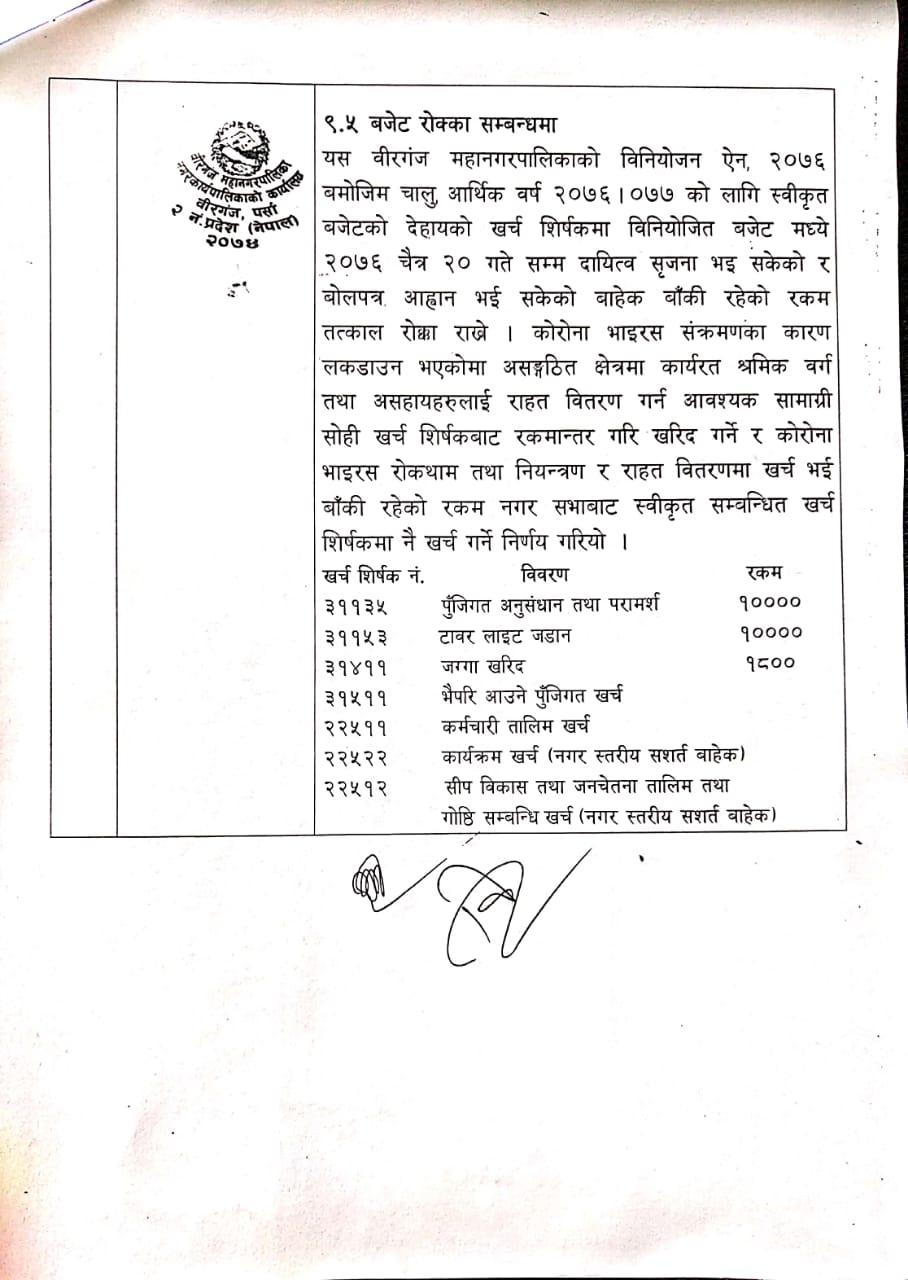 वीरगंज महानगरपालिका
नगरकार्यपालिकाको कार्यालय
वीरगंज, पर्सा
२ नं.प्रदेश (नेपाल)
२०७४
९.५ बजेट रोक्का सम्बन्धमा
यस वीरगंज महानगरपालिकाको विनियोजन ऐन, २०७६
बमोजिम चालु, आर्थिक वर्ष २०७६।०७७ को लागि स्वीकृत
बजेटको देहायको खर्च शिर्षकमा विनियोजित बजेट मध्ये
२०७६ चैत्र २० गते सम्म दायित्व सृजना भइ सकेको र
बोलपत्र आह्वान भई सकेको बाहेक बाँकी रहेको रकम
तत्काल रोक्का राख्ने । कोरोना भाइरस संक्रमणका कारण
लकडाउन भएकोमा असङ्गठित क्षेत्रमा कार्यरत श्रमिक वर्ग
तथा असहायहरुलाई राहत वितरण गर्न आवश्यक सामाग्री
सोही खर्च शिर्षकबाट रकमान्तर गरि खरिद गर्ने र कोरोना
भाइरस रोकथाम तथा नियन्त्रण र राहत वितरणमा खर्च भई
बाँकी रहेको रकम नगर सभाबाट स्वीकृत सम्वन्धित खर्च
शिर्षकमा नै खर्च गर्ने निर्णय गरियो ।
खर्च शिर्षक नं. विवरण रकम
३११३५ पुँजिगत अनुसंधान तथा परामर्श १००००
३११५३ टावर लाइट जडान १००००
३१४११ जग्गा खरिद १८००
३१५११ भैपरि आउने पुँजिगत खर्च
२२५११ कर्मचारी तालिम खर्च
२२५२२ कार्यक्रम खर्च (नगर स्तरीय सशर्त बाहेक)
२२५१२ सीप विकास तथा जनचेतना तालिम तथा
गोष्ठि सम्बन्धि खर्च (नगर स्तरीय सशर्त बाहेक)